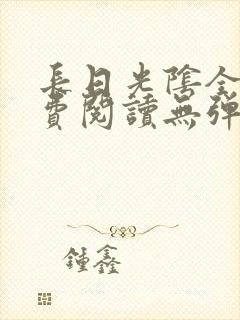 長日光陰全
費閱讀無彈
鍾鑫